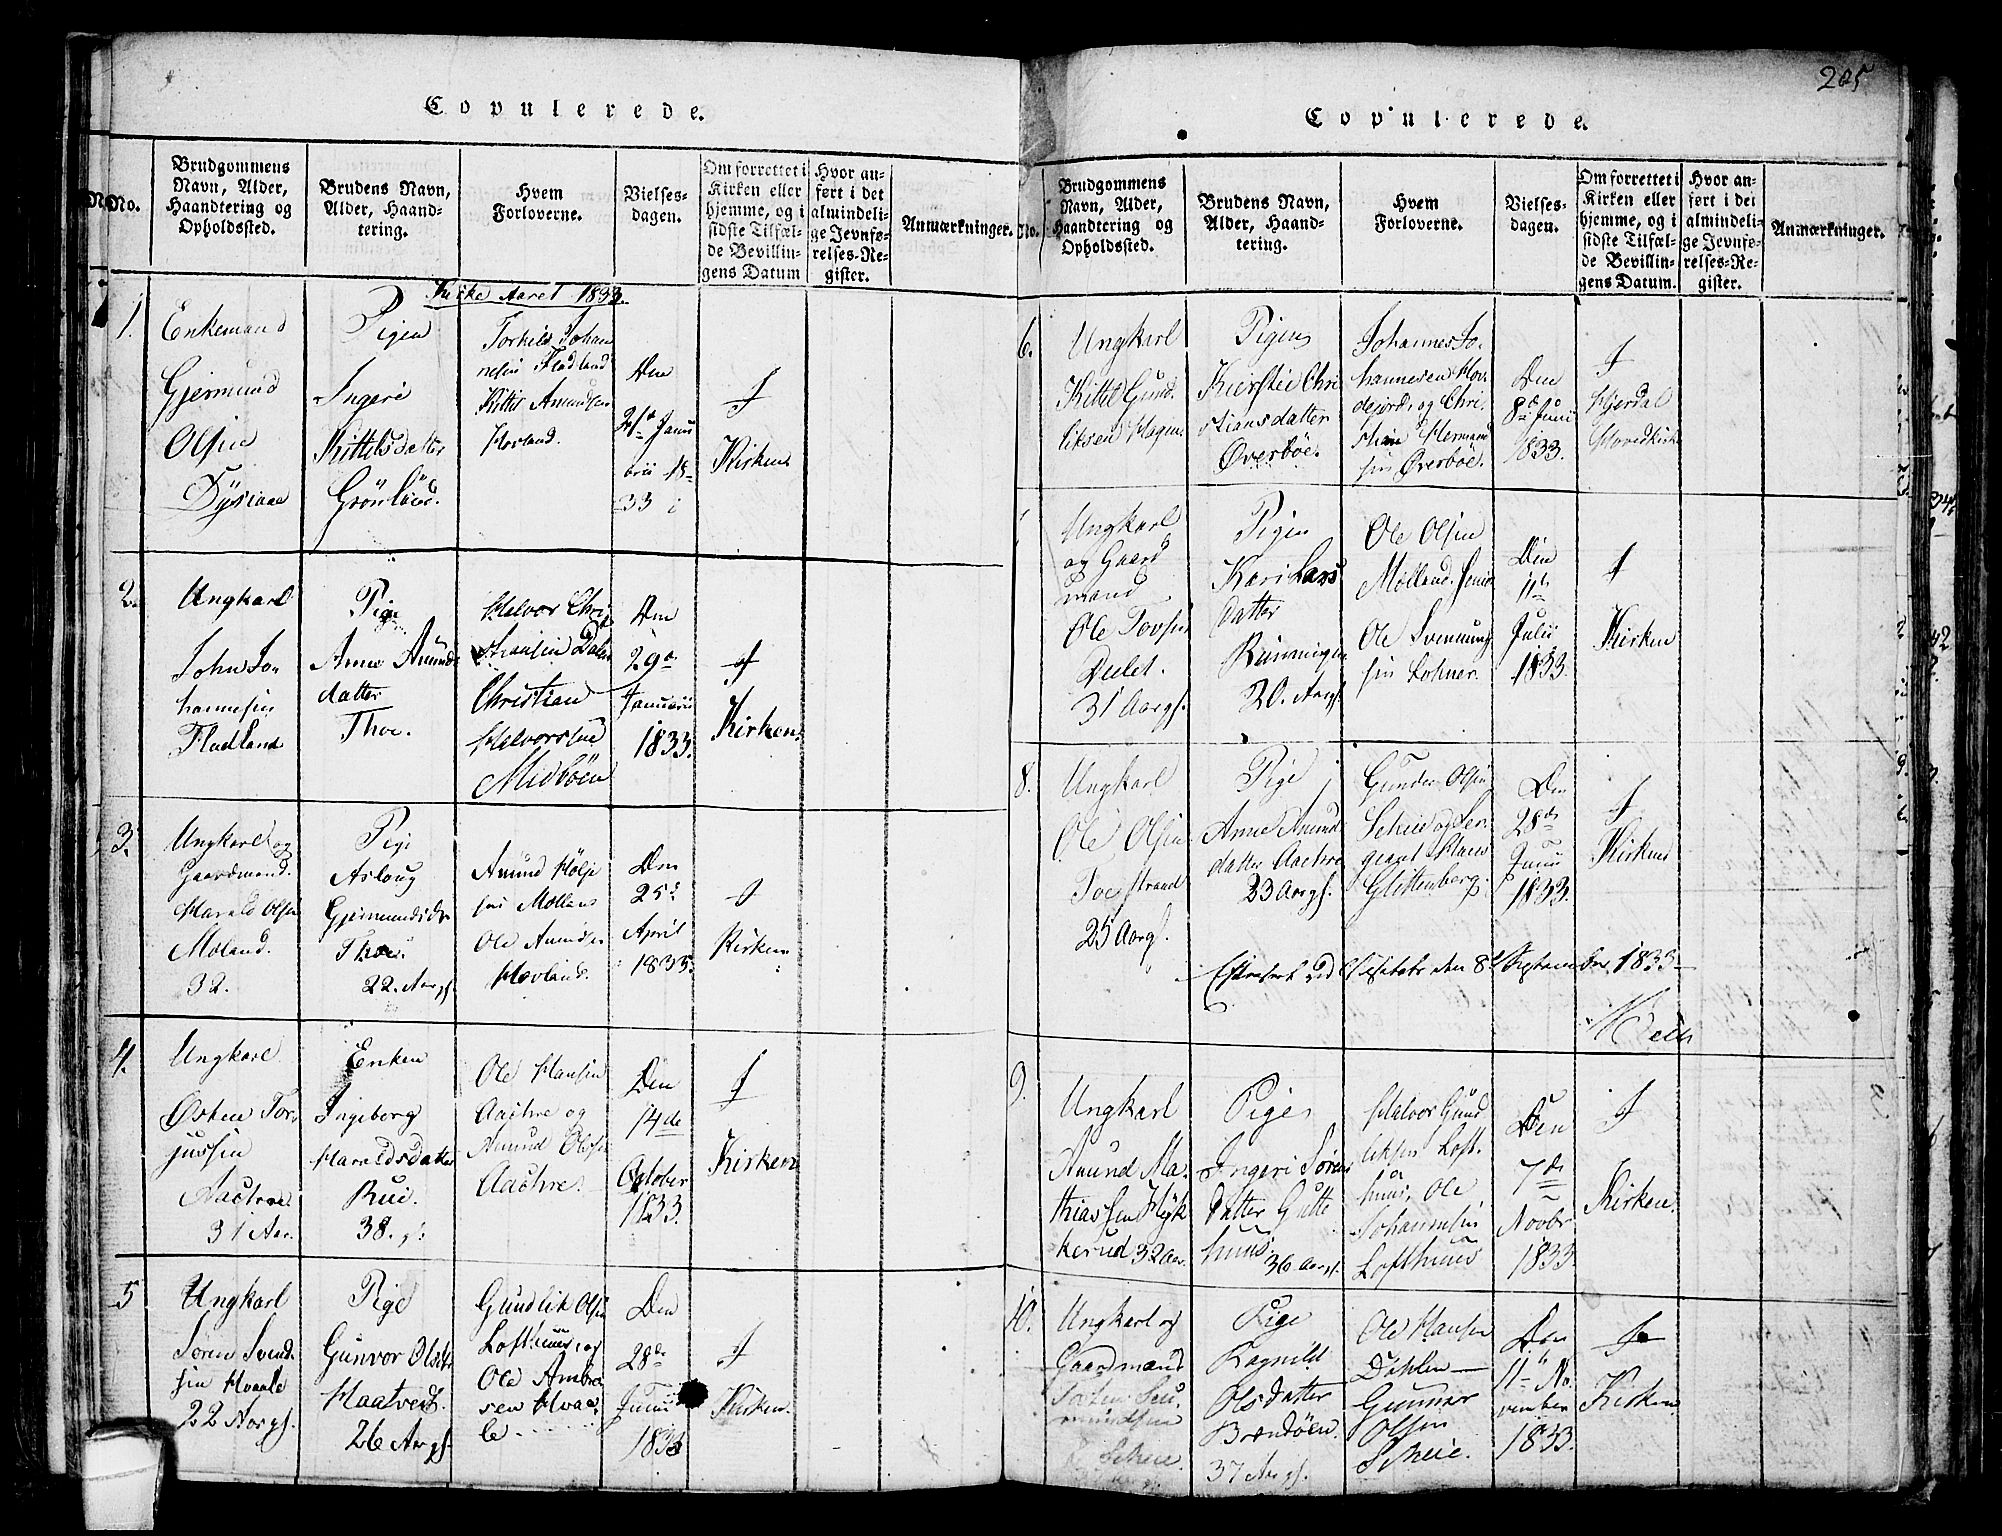 205
Copulerede.
No.
Brudgommens
Navn, Alder,
Haandtering og
Opholdssted.
Brudens Navn,
Alder, Haand-
tering.
Hvem
Forloverne.
Vielses-
dagen.
Om forrettet i
Kirken eller
hjemme, og i
sidste Tilfæl-
de Bevillin-
gens Datum
Hvor an-
ført i det
almindeli-
ge Jevnfø-
relses-Re-
gister.
Anmærkninger.
Aaret 1833.
1.
Enkemand
Gjermund
Olsen
Pigen
Ingeri
Kittelsdatter
Grönlund.
Torkild Johan
nesen Fladland
Kittil Amundsen
Hovland.
Den
21de Janu
18
33
I
Kirken
2.
Ungkarl
John Jo
hannesen
Fladland
Pige
Anne Amunds
datter
Thoe.
Halvor Chri
stiansen Dalen
Christian
Halvorsen
Midböen
Den
29de
Januarii
1833.
I
Kirken.
3.
Ungkarl og
Gaardmand.
Harald Olsen
Moland.
32.
Pige
Asloug
Gjermundsdr
Thoe.
22. Aargl.
Amund Hölje
sen Molland
Ole Amundsen
Hovland.
Den
25de
April
1833.
I
Kirken
4.
Ungkarl
Østen Tor
jussen
Aachre
31 Aar.
Enken
Ingeborg
Haraldsdatter
Rui.
38. gl.
Ole Hansen
Aachre og
Amund Olsen
Aachre.
Den
14de
October
1833.
I
Kirken
5
Ungkarl
Sören Svend
sen Hvaale
22 Aargl.
Pige
Gunvor Olsdtr
Haatvedt.
26 Aargl.
Gundlik Olsen
Lofthuus, og
Ole Ambro
sen Hvaa
le
Den
28de
Junii
1833
I
Kirken.
Copulerede.
No.
Brudgommens
Navn, Alder,
Haandtering og
Opholdssted.
Brudens Navn,
Alder, Haand-
tering.
Hvem
Forloverne.
Vielses-
dagen.
Om forrettet i
Kirken eller
hjemme, og i
sidste Tilfæl-
de Bevillin-
gens Datum.
Hvor an-
ført i det
almindeli-
ge Jevnfø-
relses-Re-
gister.
Anmærkninger.
6.
Ungkarl
Kittil Gund
liksen Hagen
Pigen
Kierstie Chri
stiansdatter
Øverböe.
Johannes Jo
hannesen Hov
dejord, og Chri
stian Hermand
sen Øverböe.
Den
8de Junii
1833.
I
Hjerdal
Hovedkirke
Ungkarl
og Gaard
mand
Ole Tovsen
31 Aargl.
Pigen
Kari Lars
datter
20. Aargl.
Ole Olsen
Molland
Ole Svennung
sen
Den
11de
Julii
1833.
I
Kirken
8.
Ungkarl
Ole Olsen
Toestrand
25 Aargl.
Pige
Anne Amund
datter Aachre
23 Aargl.
Gunder Olsen
Scheie og Ser
geant Hans
Glittenberg.
Den
28de
Junii
1833.
I
Kirken
den 8de September 1833
9.
Ungkarl
Amund Ma
thiassen Flyk
kerud 32 Aar.
Pige
Ingeri Sörens
datter Gutte
huus. 36 Aargl.
Halvor Gund
liksen Loft
huus, Ole
Johannesen
Lofthuus
Den
7de
Novbr
1833.
I
Kirken.
10.
Ungkarl og
Gaardmand
mundsen
Scheie.
Pige
Ragnild
Olsdatter
Brendöen.
37 Aargl.
Ole Hansen
Dahlen
Gunnar
Olsen
Scheie.
Den
11te No
vember
1833.
I
Kirken.